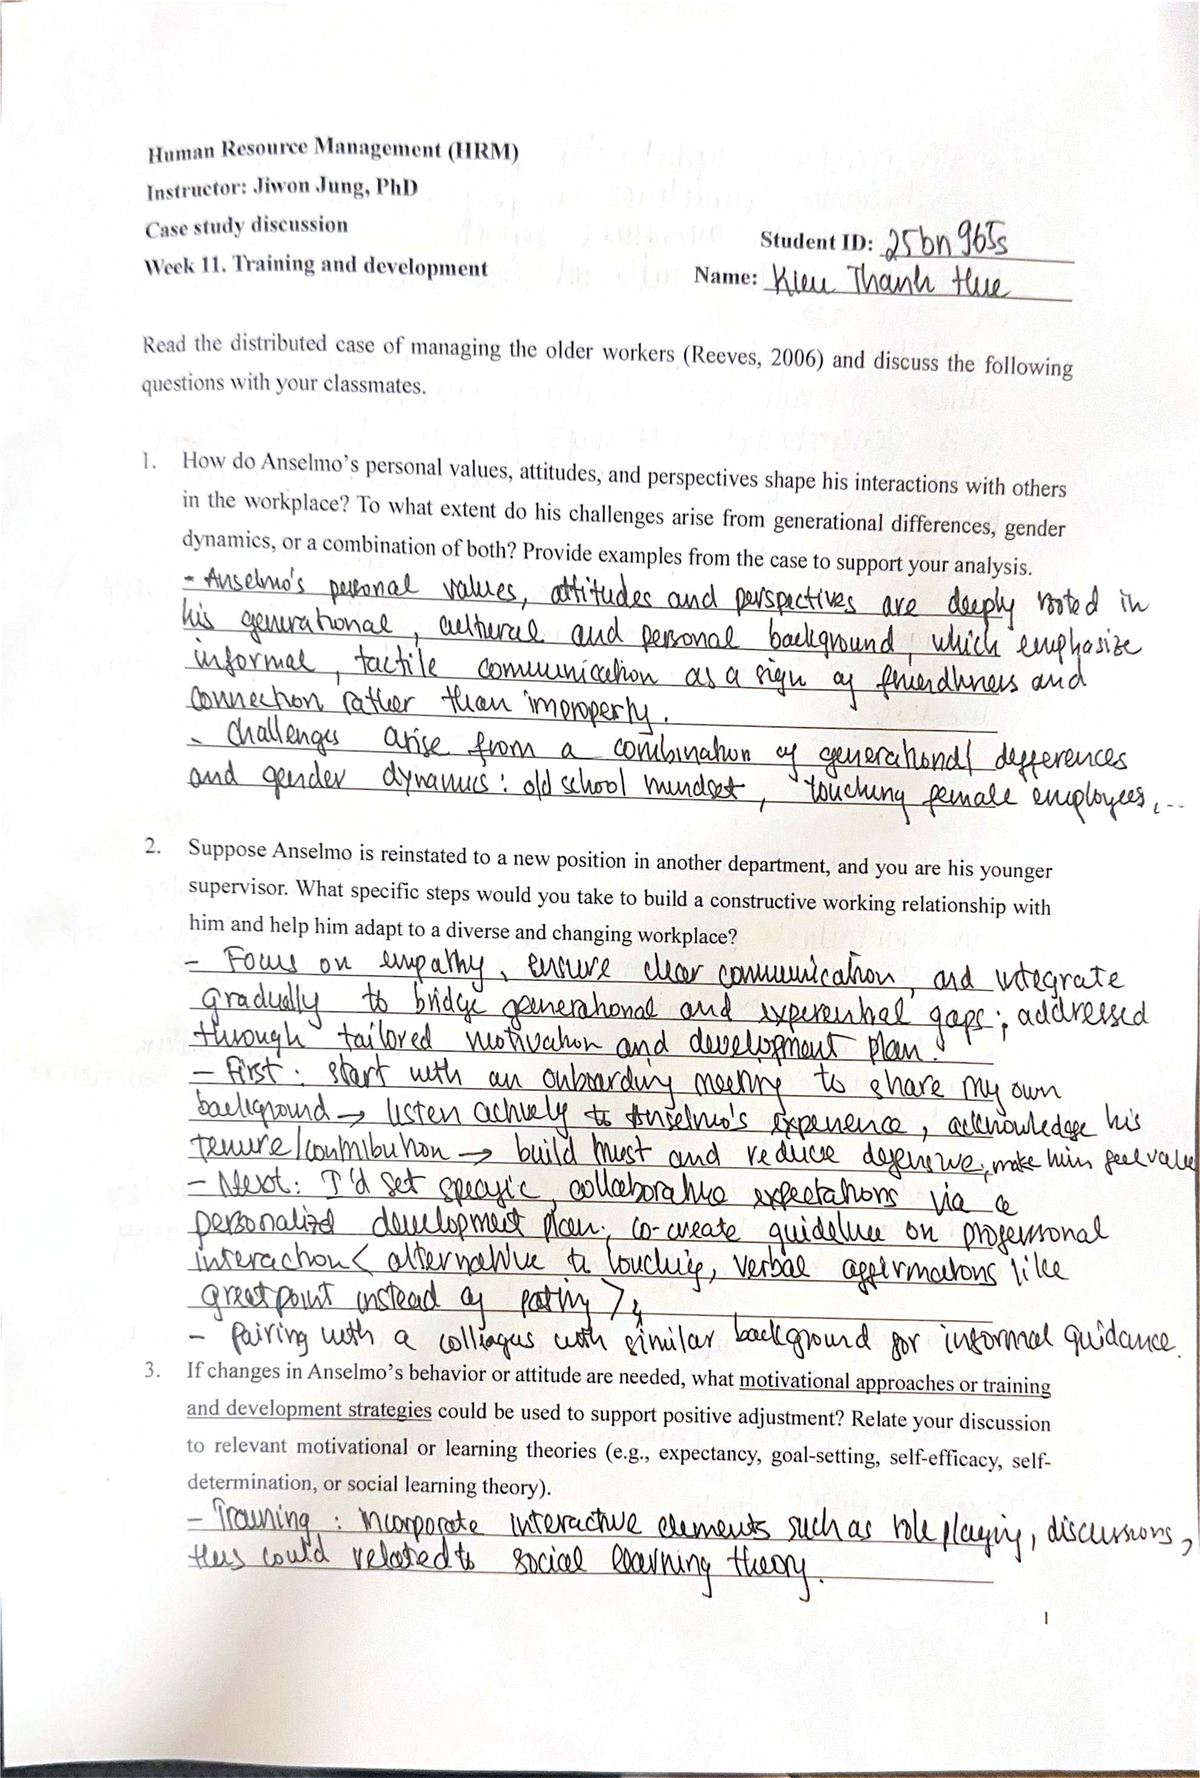 Human Resource Management (HRM)
Instructor: Jiwon Jung, PhD
Case study discussion
Student ID: 25bn965s
Week 11. Training and development
Name: Kieu Thanh Hue
Read the distributed case of managing the older workers (Reeves, 2006) and discuss the following
questions with your classmates.
1. How do Anselmo's personal values, attitudes, and perspectives shape his interactions with others
in the workplace? To what extent do his challenges arise from generational differences, gender
dynamics, or a combination of both? Provide examples from the case to support your analysis.
- Anselmo's personal values, attitudes and perspectives are deeply rooted in
his generational, cultural and personal background, which emphasize
informal, tactile communication as a sign of friendliness and
connection rather than improperly.
- Challenges arise from a combination of generational differences
and gender dynamics: old school mindset, touching female employees,...
2. Suppose Anselmo is reinstated to a new position in another department, and you are his younger
supervisor. What specific steps would you take to build a constructive working relationship with
him and help him adapt to a diverse and changing workplace?
- Focus on empathy, ensure clear communication, and integrate
gradually to bridge generational and experential gaps; addressed
through tailored motivation and development plan.
- First: start with an onboarding meeting to share my own
background → listen actively to Anselmo's experience, acknowledge his
tenure/contribution → build trust and reduce defensive, make him feel value
- Next: I'd set specific collaborative expectations via a
personalized development plan; co-create guideline on professional
interaction < alternative to touching, verbal affirmations like
great point instead of patting >
- Pairing with a collegues with similar background for informal guidance.
3. If changes in Anselmo's behavior or attitude are needed, what motivational approaches or training
and development strategies could be used to support positive adjustment? Relate your discussion
to relevant motivational or learning theories (e.g., expectancy, goal-setting, self-efficacy, self-
determination, or social learning theory).
- Training: incorporate interactive elements such as role playing, discussions,
thus could related to social learning theory.
1